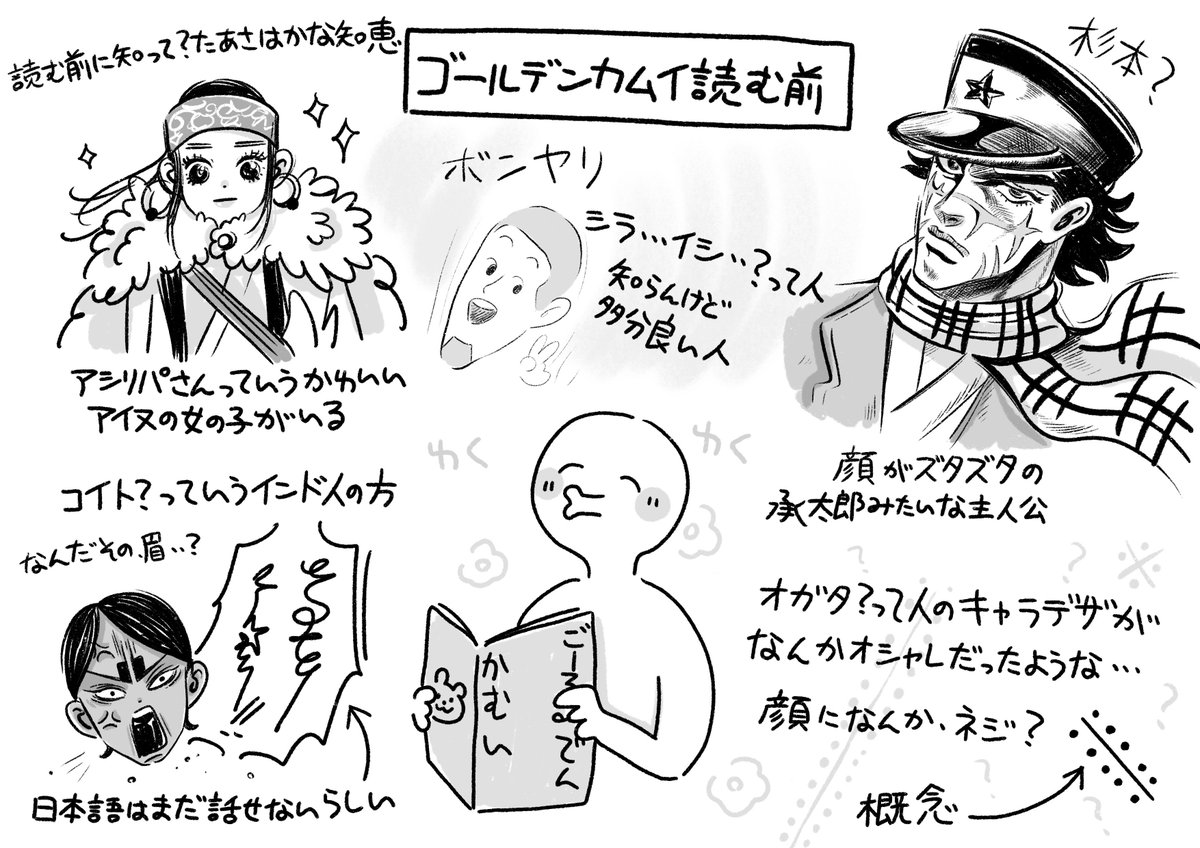 ゴールデンカムイ読む前
読む前に知って?たあさはかな知恵
アシリパさんっていうかわいい
アイヌの女の子がいる
ボンヤリ
シラ…イシ…?って人
知らんけど
多分良い人
杉本?
顔がズタズタの
承太郎みたいな主人公
コイト?っていうインド人の方
なんだその眉…?
日本語はまだ話せないらしい
わく
わく
ごーるでん
かむい
オガタ?って人のキャラデザが
なんかオシャレだったような…
顔になんか、ネジ?
概念